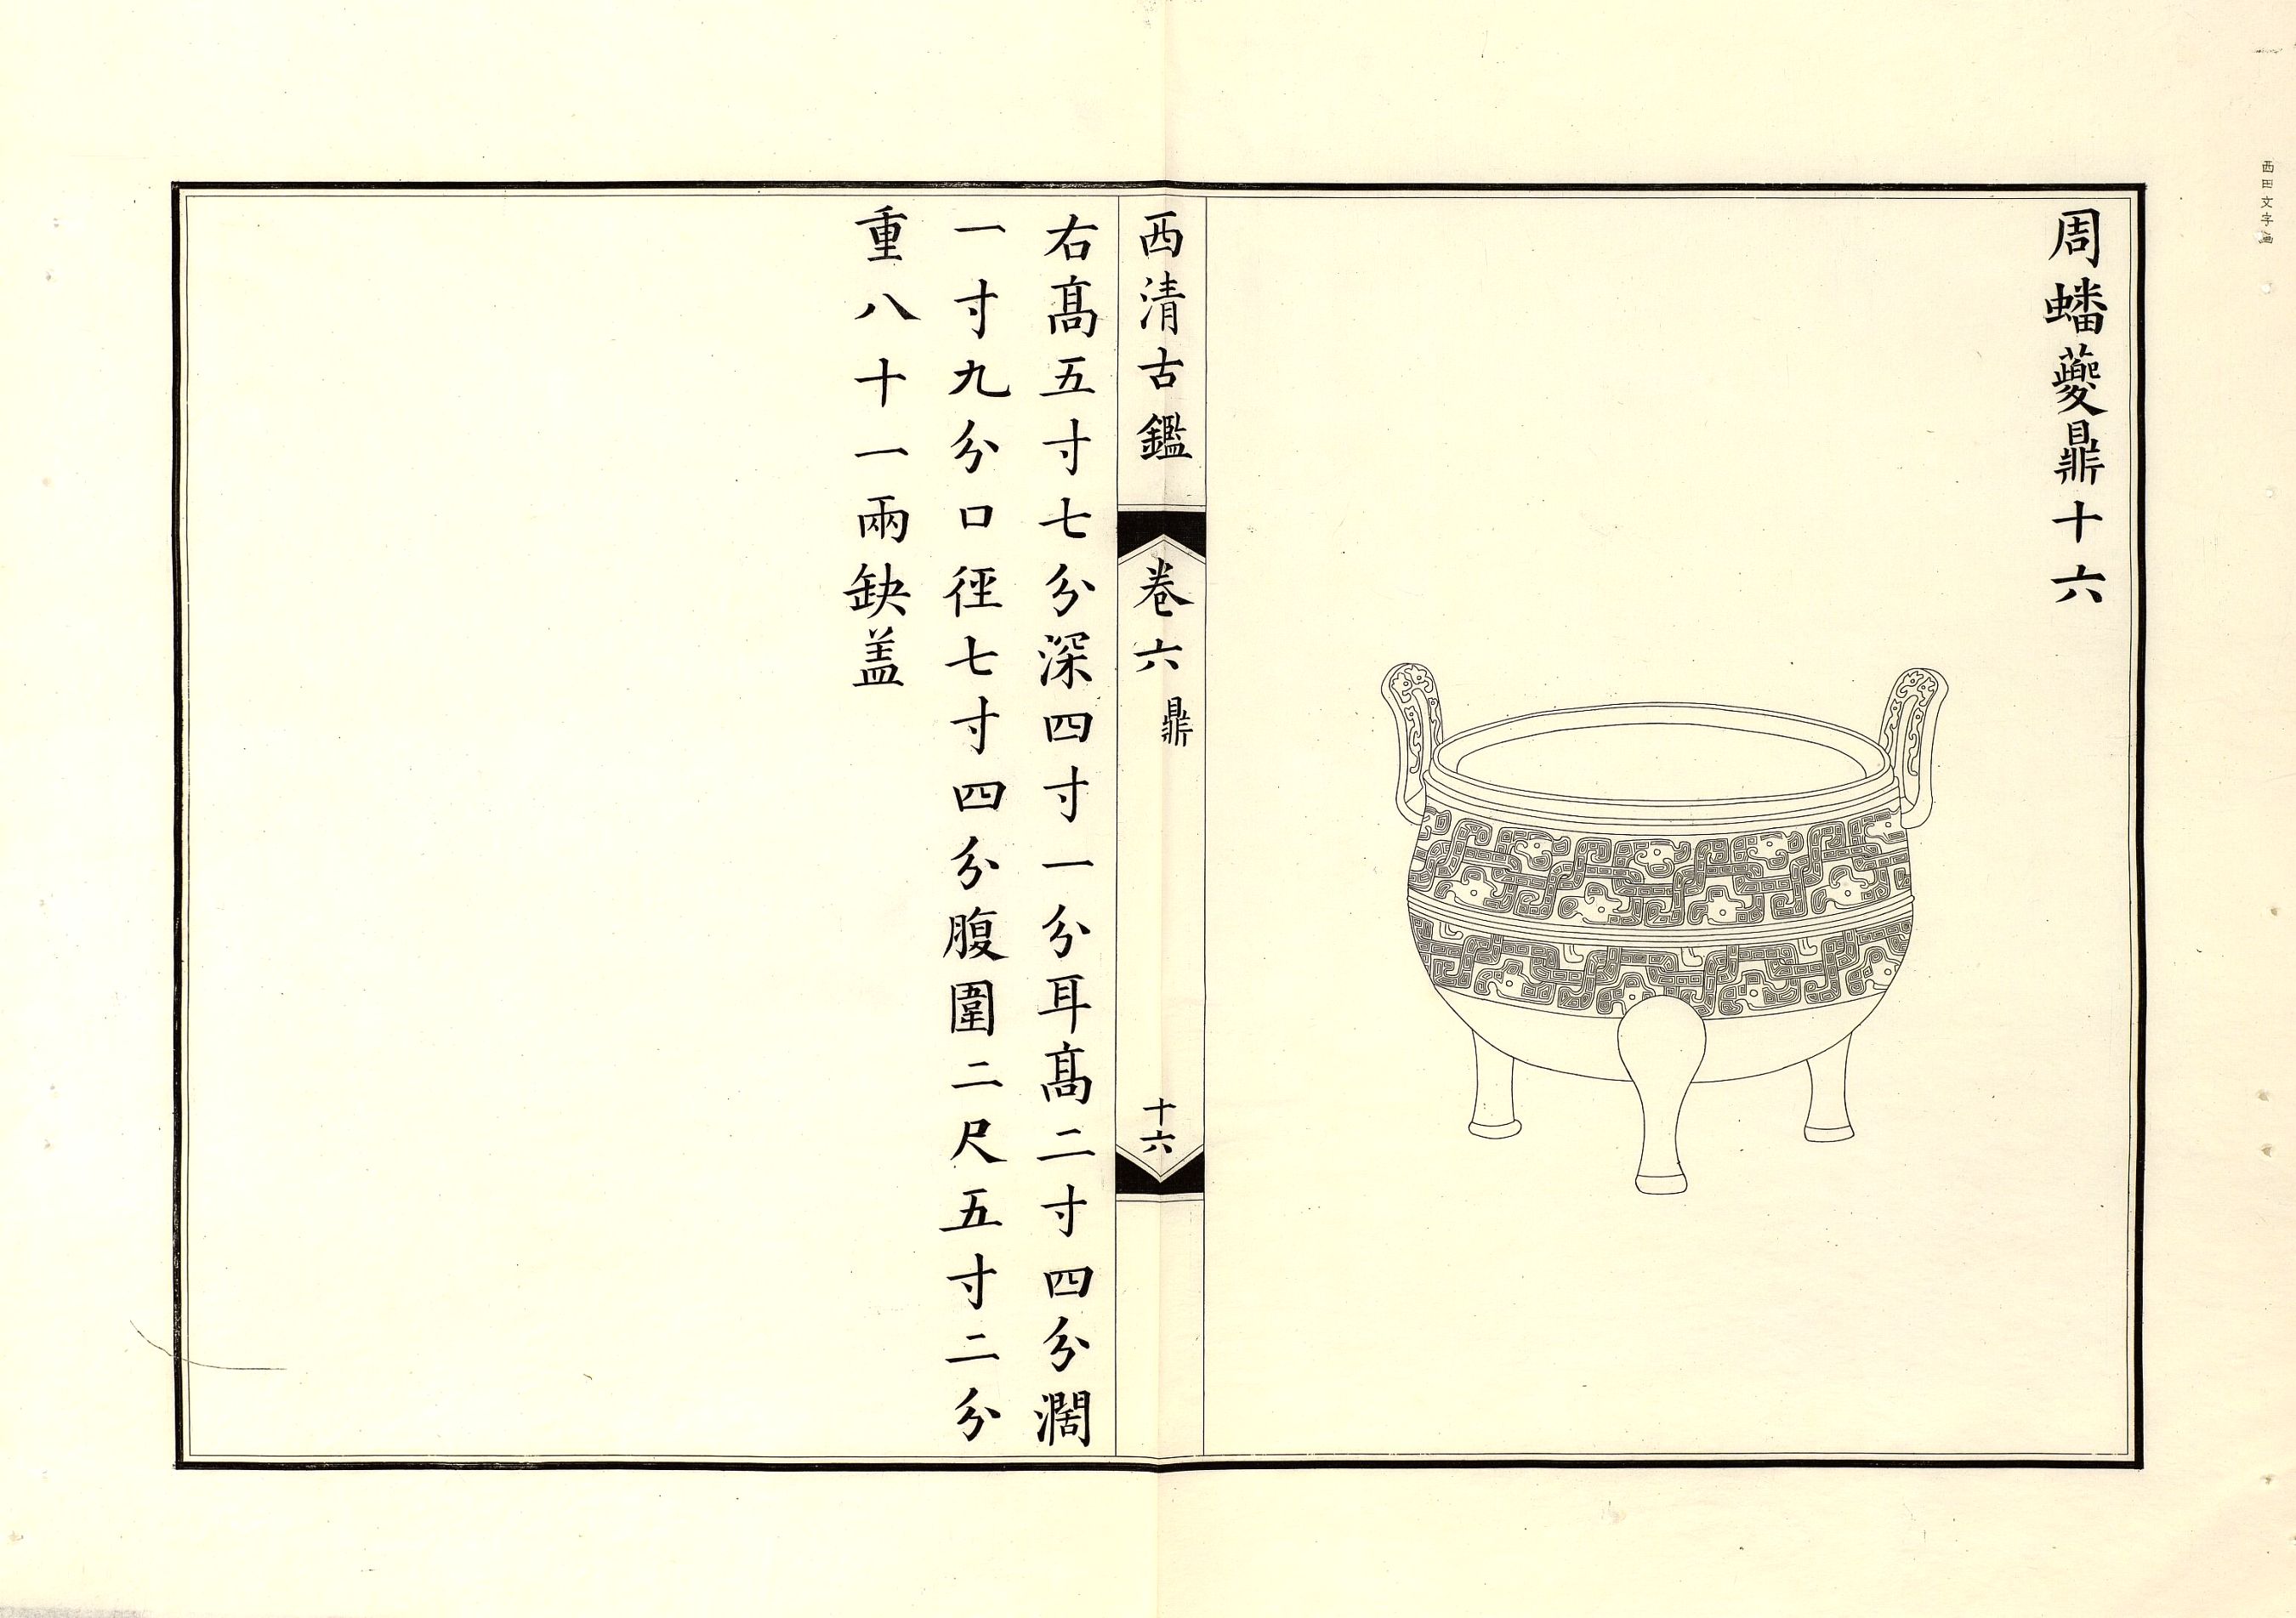 西田文字画
周蟠夔鼎十六
西清古鑑 卷六 鼎 十六
右髙五寸七分深四寸一分耳髙二寸四分濶
一寸九分口徑七寸四分腹圍二尺五寸二分
重八十一兩缺葢